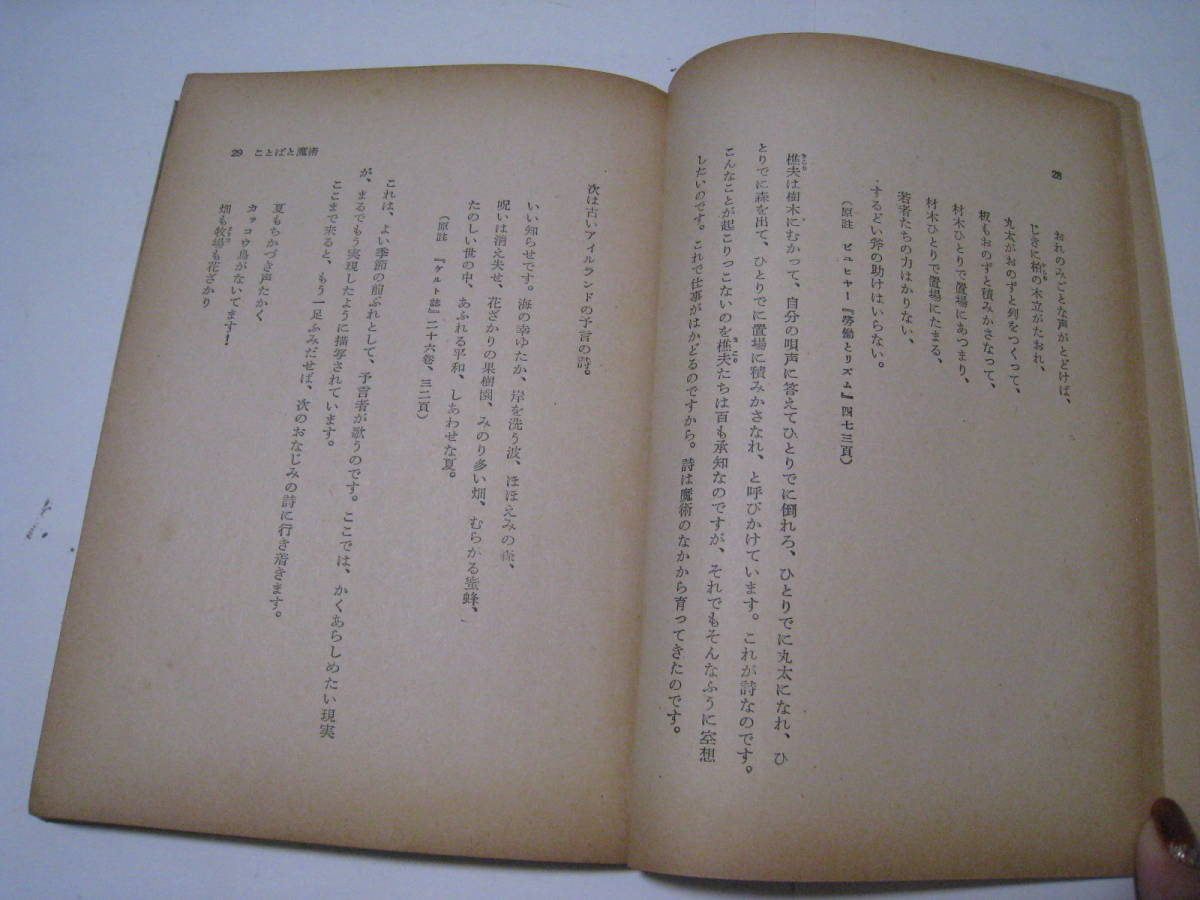 28
おれのみごとな声がとどけば、
じきに柏の木立がたおれ、
丸太がおのずと列をつくって、
板もおのずと積みかさなって、
材木ひとりで置場にあつまり、
材木ひとりで置場にたまる、
若者たちの力はかりない、
するどい斧の助けはいらない。
（原註 ビュヒャー『労働とリズム』四七三頁）
樵夫は樹木にむかって、自分の唄声に答えてひとりでに倒れろ、ひとりでに丸太になれ、ひ
とりでに森を出て、ひとりでに置場に積みかさなれ、と呼びかけています。これが詩なのです。
こんなことが起こりっこないのを樵夫たちは百も承知なのですが、それでもそんなふうに空想
したいのです。これで仕事がはかどるのですから。詩は魔術のなかから育ってきたのです。
次は古いアイルランドの予言の詩。
いい知らせです。海の幸ゆたか、岸を洗う波、ほほえみの森、
呪いは消え失せ、花ざかりの果樹園、みのり多い畑、むらがる蜜蜂、
たのしい世の中、あふれる平和、しあわせな夏。
（原註 『ケルト誌』二十六巻、三二頁）
これは、よい季節の前ぶれとして、予言者が歌うのです。ここでは、かくあらしめたい現実
が、まるでもう実現したように描写されています。
ここまで来ると、もう一足ふみだせば、次のおなじみの詩に行き着きます。
夏もちかづき声たかく
カッコウ鳥がないてます！
畑も牧場も花ざかり
29 ことばと魔術